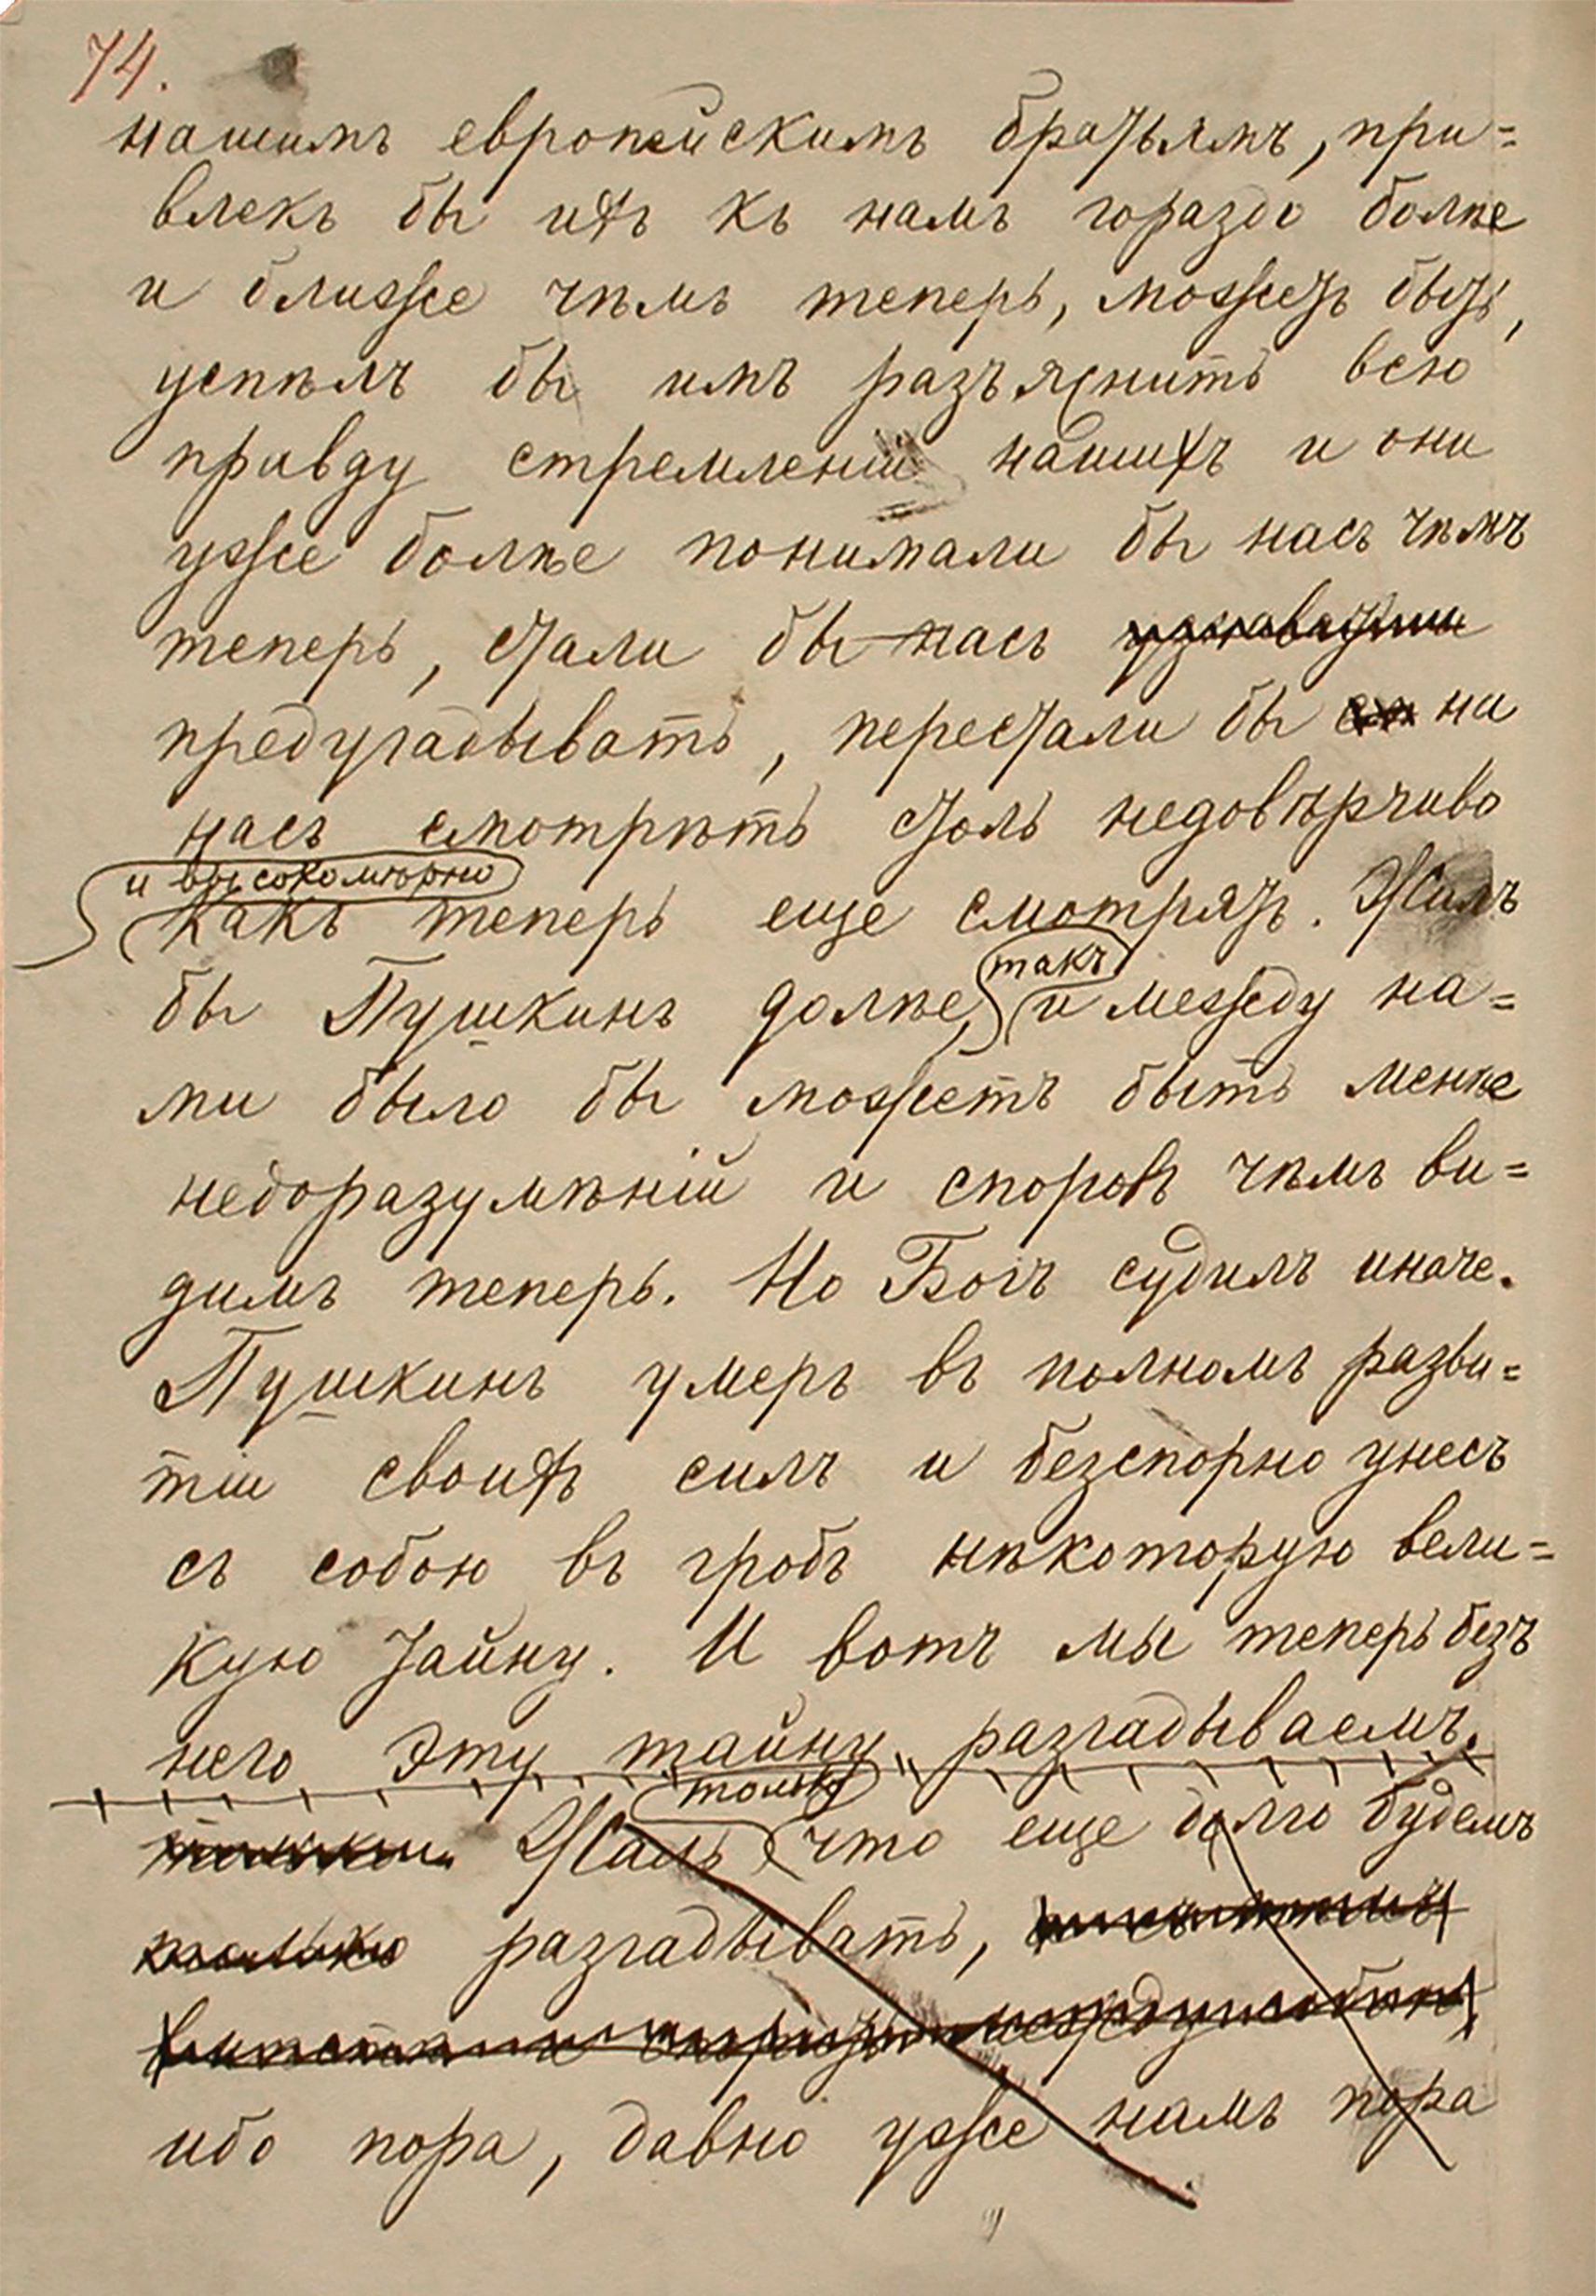 74.
нашимъ европейскимъ братьямъ, при=
влекъ бы ихъ къ намъ гораздо болѣе
и ближе чѣмъ теперь, можетъ быть,
успѣлъ бы имъ разъяснить всю
правду стремленій нашихъ и они
уже болѣе понимали бы насъ чѣмъ
теперь, стали бы насъ
предугадывать, перестали бы на
насъ смотрѣть столь недовѣрчиво
и высокомѣрно
какъ теперь еще смотрятъ. Жилъ
такъ
бы Пушкинъ долѣе, и между на=
ми было бы можетъ быть менѣе
недоразумѣній и споровъ чѣмъ ви=
димъ теперь. Но Богъ судилъ иначе.
Пушкинъ умеръ въ полномъ разви=
тіи своихъ силъ и безспорно унесъ
съ собою въ гробъ нѣкоторую вели=
кую тайну. И вотъ мы теперь безъ
него эту тайну разгадываемъ.
только
Жаль что еще долго будемъ
только разгадывать,
ибо пора, давно уже намъ пора